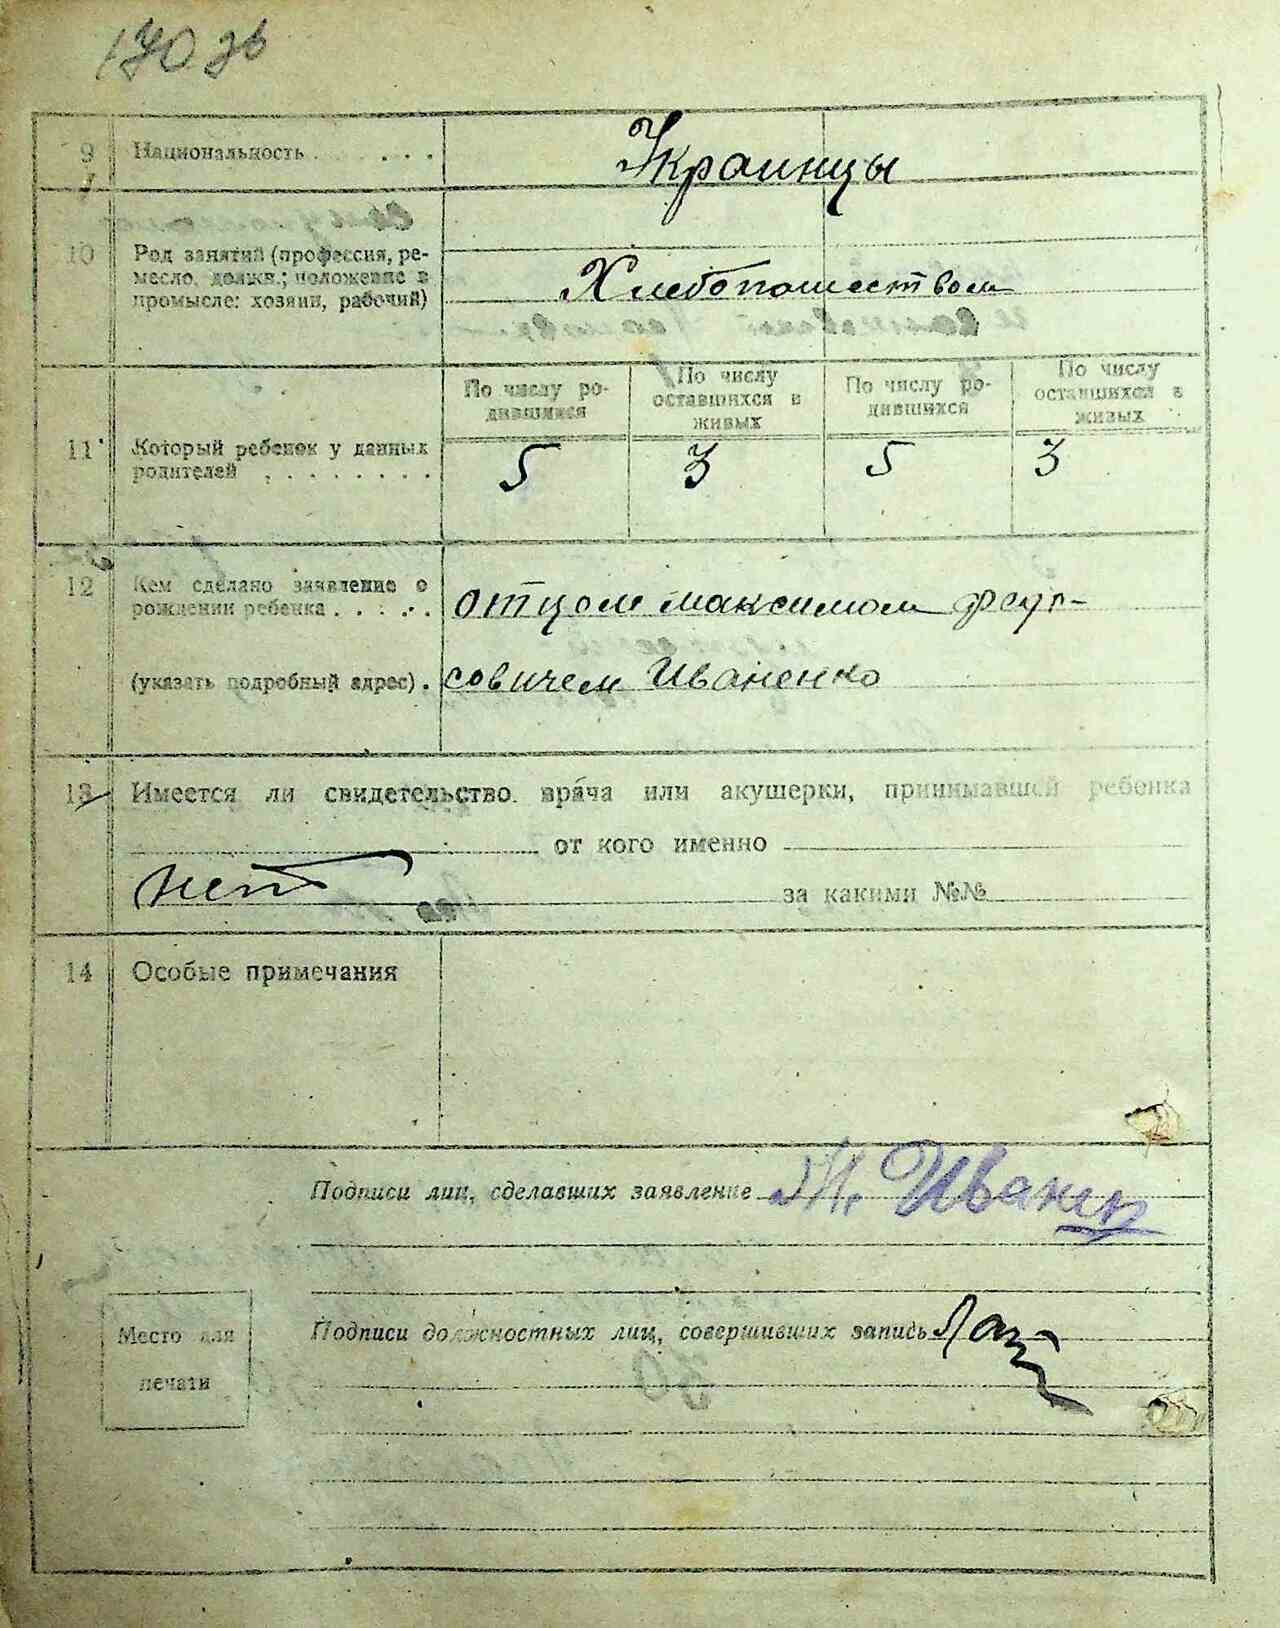 170 зв
9 Национальность . . . .
Украинцы
10 Род занятий (профессия, ре-
месло, должн.; положение в
промысле: хозяин, рабочий)
Хлебопашеством
По числу ро-
дившихся
По числу
оставшихся в
живых
По числу ро-
дившихся
По числу
оставшихся в
живых
11 Который ребенок у данных
родителей . . . . . . . .
5 3 5 3
12 Кем сделано заявление о
рождении ребенка . . . . .
(указать подробный адрес) .
отцом Максимом
совичем Иваненко
13 Имеется ли свидетельство врача или акушерки, принимавшей ребенка
от кого именно
нет за какими №№
14 Особые примечания
Подписи лиц, сделавших заявление М. Иванен
Место для
печати
Подписи должностных лиц, совершивших запись